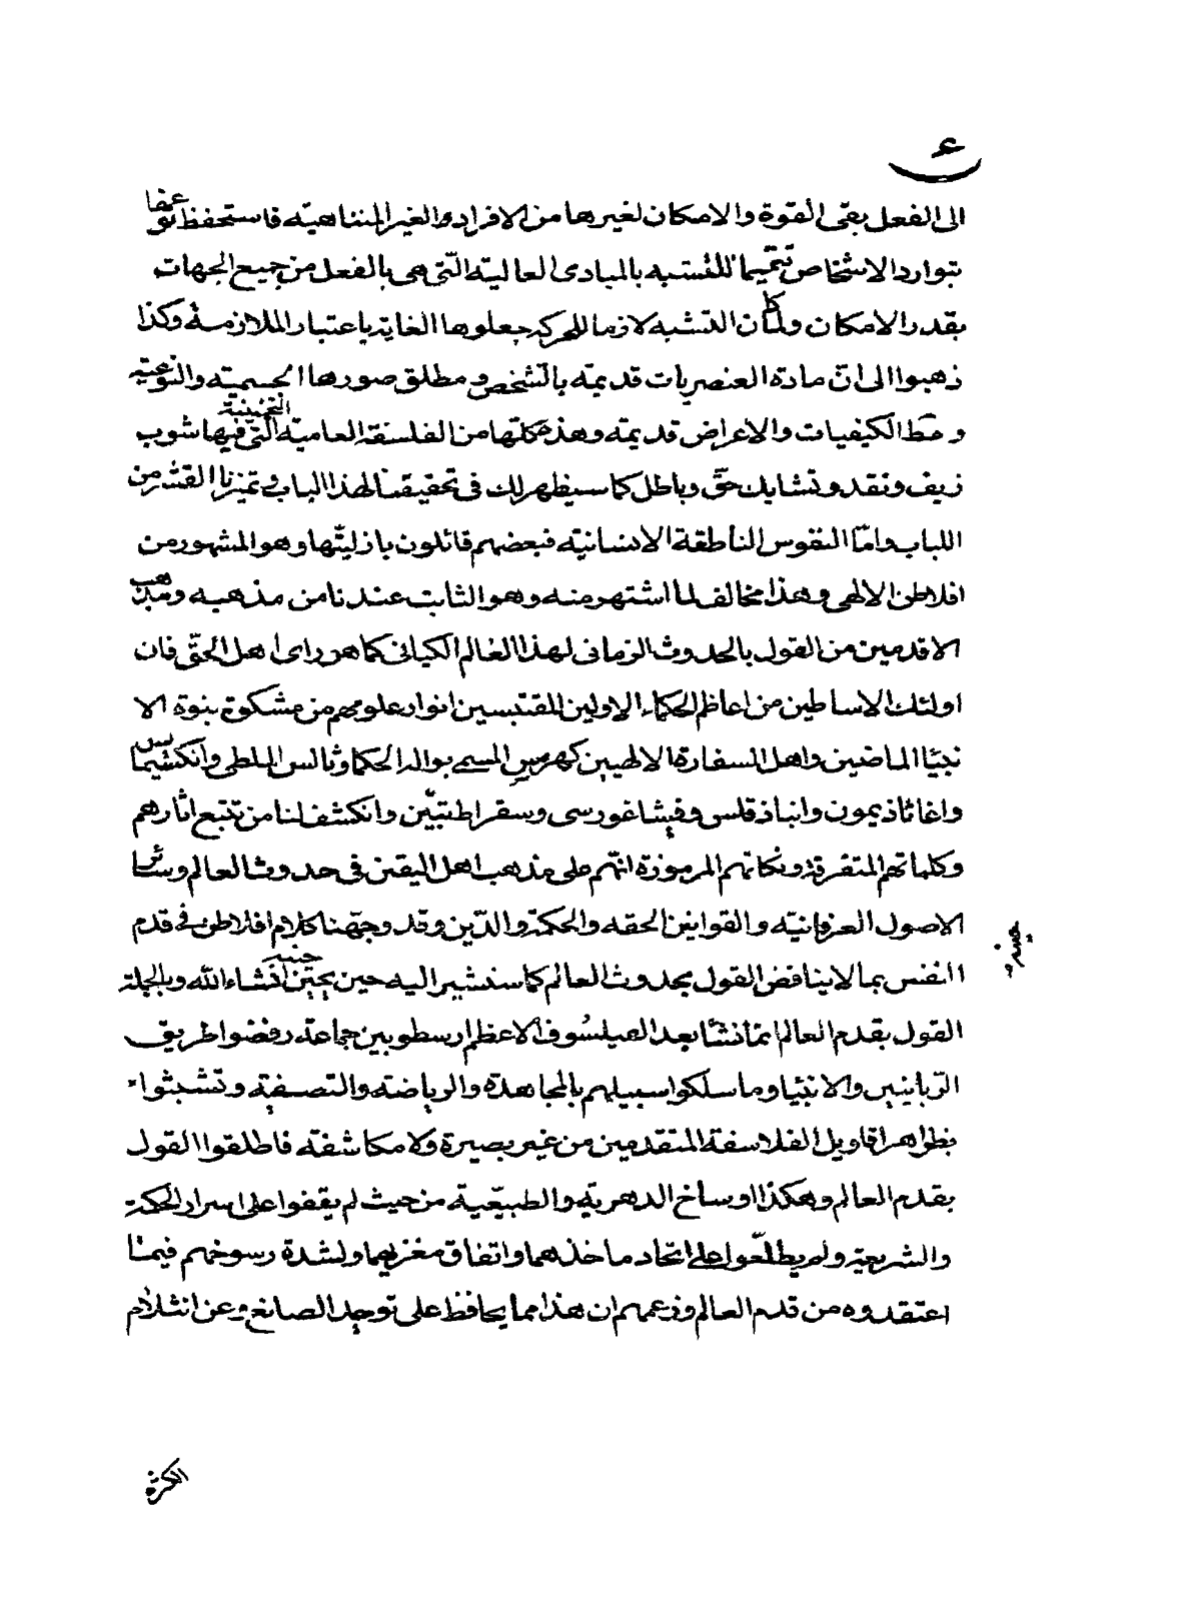 ع
الى الفعل بقى القوة والامكان لغيرها من الافراد الغير المتناهيه فاستحفظ نوعها
بتوارد الاشخاص تتميما للتشبه بالمبادى العاليه التى هى بالفعل من جميع الجهات
بقدر الامكان ولما كان التشبه لازما للحركه جعلوها الغايه باعتبار الملازمة وكذا
ذهبوا الى ان مادة العنصريات قديمه بالتشخص ومطلق صورها الجسميته والنوعيه
ومط الكيفيات والاعراض قديمه وهذه كلها من الفلسفه العاميه التخمينية التى فيها شوب
زيف ونقد وتشابك حق وباطل كما سيظهر لك فى تحقيقنا لهذا الباب وتميزنا القشر من
اللباب واما النفوس الناطقة الانسانيه فبعضهم قائلون بازليتها وهو المشهور من
افلاطن الالهى وهذا مخالف لما اشتهر منه وهو الثابت عندنا من مذهبه ومذهب
الاقدمين من القول بالحدوث الزمانى لهذا العالم الكيانى كما هو راى اهل الحق فان
اولئك الاساطين من اعاظم الحكماء الاولين المقتبسين انوار علومهم من مشكوة نبوة الا
نبيا الماضين واهل السفارة الالهيين كهرمس المسمى بوالد الحكما وثالس الملطى وانكسيمايس
واغاثاذيمون وانباذقلس وفيثاغورسى وسقراط تبين وانكشف لنا من تتبع اثارهم
وكلماتهم المتفرقة ونكاتهم المرموزة انهم على مذهب اهل اليقين فى حدوث العالم وسائر
الاصول العرفانيه والقوانين الحقه والحكمة والدين وقد وجهنا كلام افلاطن فى قدم
النفس بما لا يناقض القول بحدوث العالم كما سنشير اليه حين يجئ حينه انشاء الله وبالجملة
القول بقدم العالم انما نشا بعد الفيلسوف الاعظم ارسطو بين جماعة رفضوا طريق
الربانيين والانبيا وما سلكوا سبيلهم بالمجاهدة والرياضه والتصفيه وتشبثوا
بظواهر اقاويل الفلاسفة المتقدمين من غير بصيرة ولا مكاشفه فاطلقوا القول
بقدم العالم وهكذا اوساخ الدهريه والطبيعيه من حيث لم يقفوا على اسرار الحكمة
والشريعة ولم يطلعوا على اتحاد ماخذهما واتفاق مغزيهما ولشدة رسوخهم فيما
اعتقدوه من قدم العالم وزعمهم ان هذا مما يحافظ على توحيد الصانع وعن انثلام
الكثرة